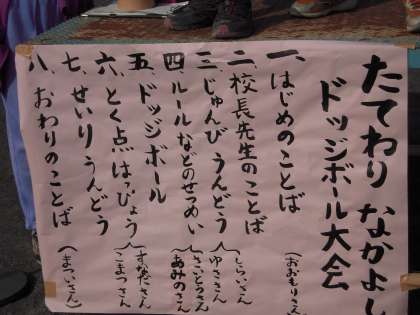 たてわり なかよし
ドッジボール大会
一、はじめのことば
(おおもりさん)
二、校長先生のことば
三、じゅんび うんどう
(しらいさん
ゆききん)
四、ルールなどのせつめい
(さいとうさん
あみのさん)
五、ドッジボール
六、とく点はっぴょう
(すなださん
こまつさん)
七、せいり うんどう
八、おわりのことば
(まついさん)